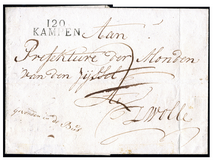 120
KAMPEN
Aan
Prefekture der Monden
van den Yssel
Zwolle